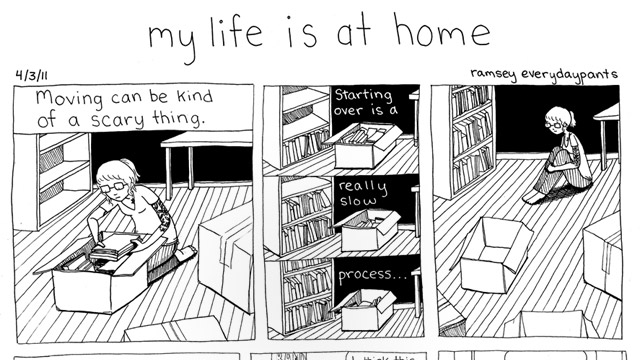 my life is at home
4/3/11
ramsey everydaypants
Moving can be kind
of a scary thing.
Starting
over is a
really
slow
process...